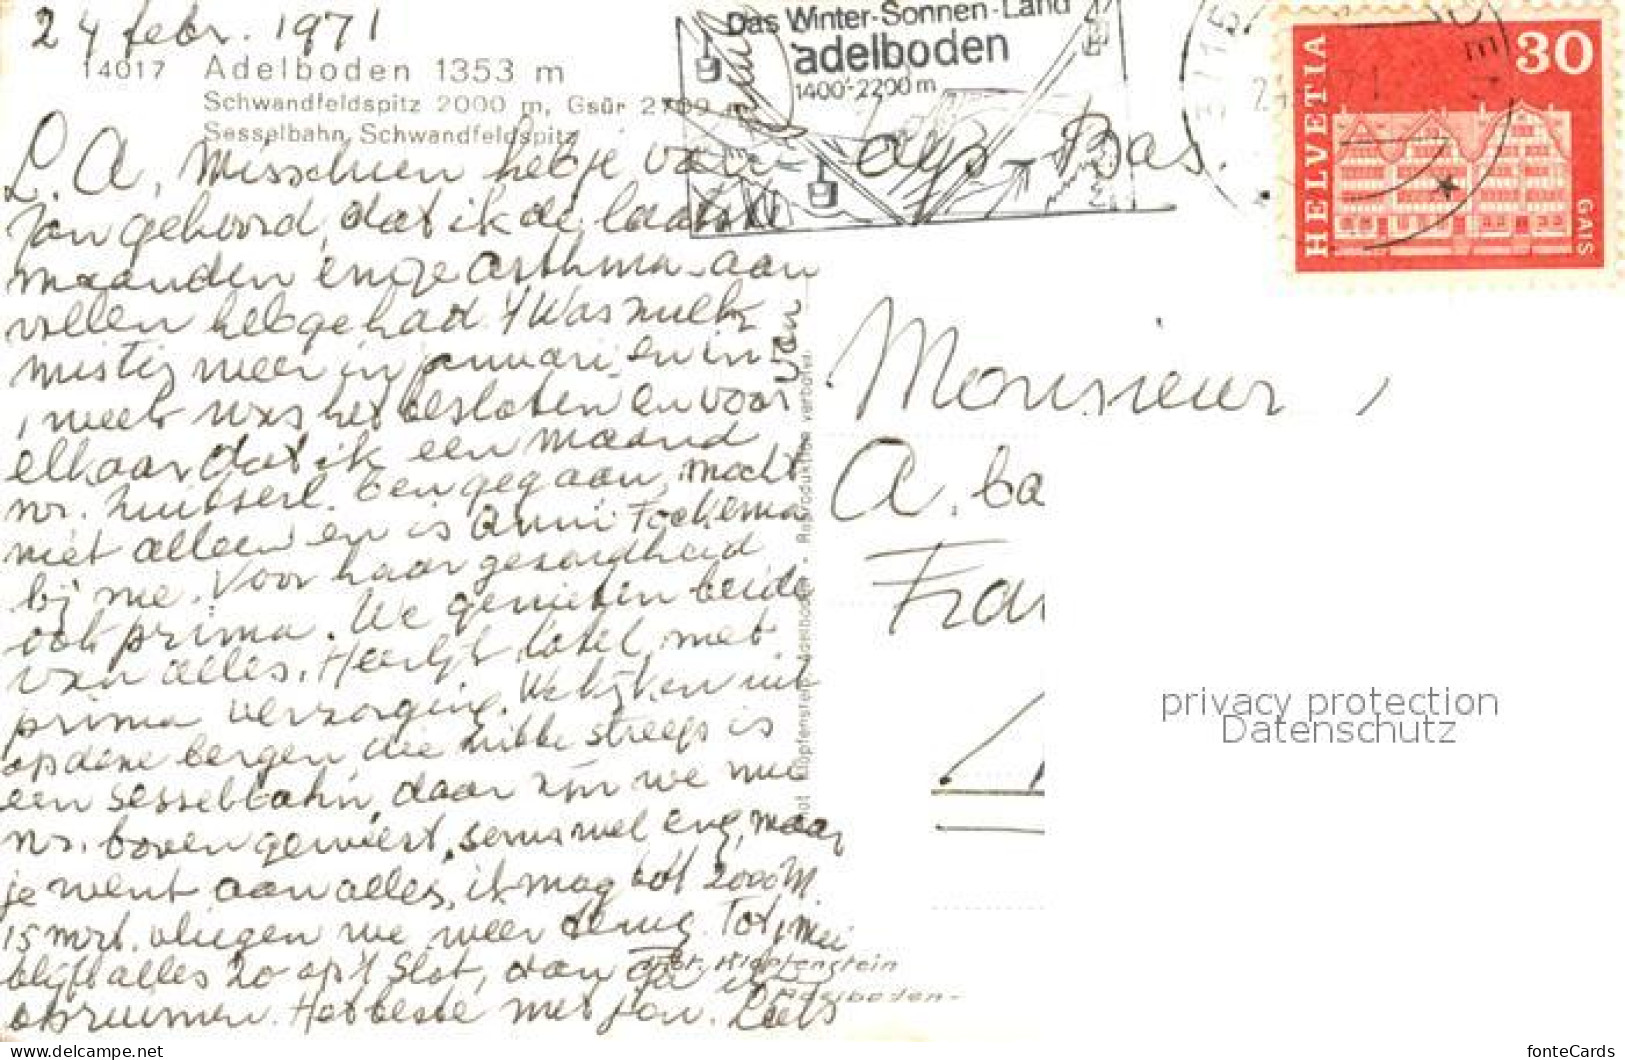 24 febr. 1971
14017 Adelboden 1353 m
Schwandfeldspitz 2000 m, Gsür 2709 m
Sesselbahn Schwandfeldspitz
Das Winter-Sonnen-Land
adelboden
1400-2200 m
HELVETIA
30
GAIS
L. A, Misschien heb je van
Jan gehoord, dat ik de laatste
maanden enige asthma-aan
vallen heb gehad. 't Was nuely
mistig weer in januari en in
week was het besloten en voor
elkaar, dat ik een maand
nr. Zwitserl. ben gegaan, mocht
niet alleen en is Anni Fockema
bij me. Voor haar gezondheid
ook prima. We genieten beide
van alles. Heerlijk hotel, met
prima verzorging. We kijken uit
op deze bergen, die witte streep is
een sesselbahn, daar zijn we mee
nr. boven geweest, soms wel eng, maar
je went aan alles, ik mag tot 2000 M.
15 mrt. vliegen we weer terug. Tot 1 Mei
blijft alles zo op 't Slot, dan ga ik
opruimen. Het beste met jou. Loels
Monsieur,
A. ba
Fran
Reproduktion verboten
Klopfenstein, Adelboden
Phot. Klopfenstein
Adelboden
privacy protection
Datenschutz
www.delcampe.net
fonteCards